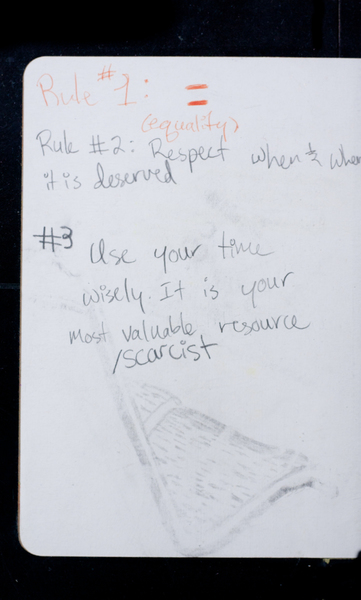 Rule #1: =
(equality)
Rule #2: Respect when & when
it is deserved
#3 Use your time
wisely. It is your
most valuable resource
/scarcist